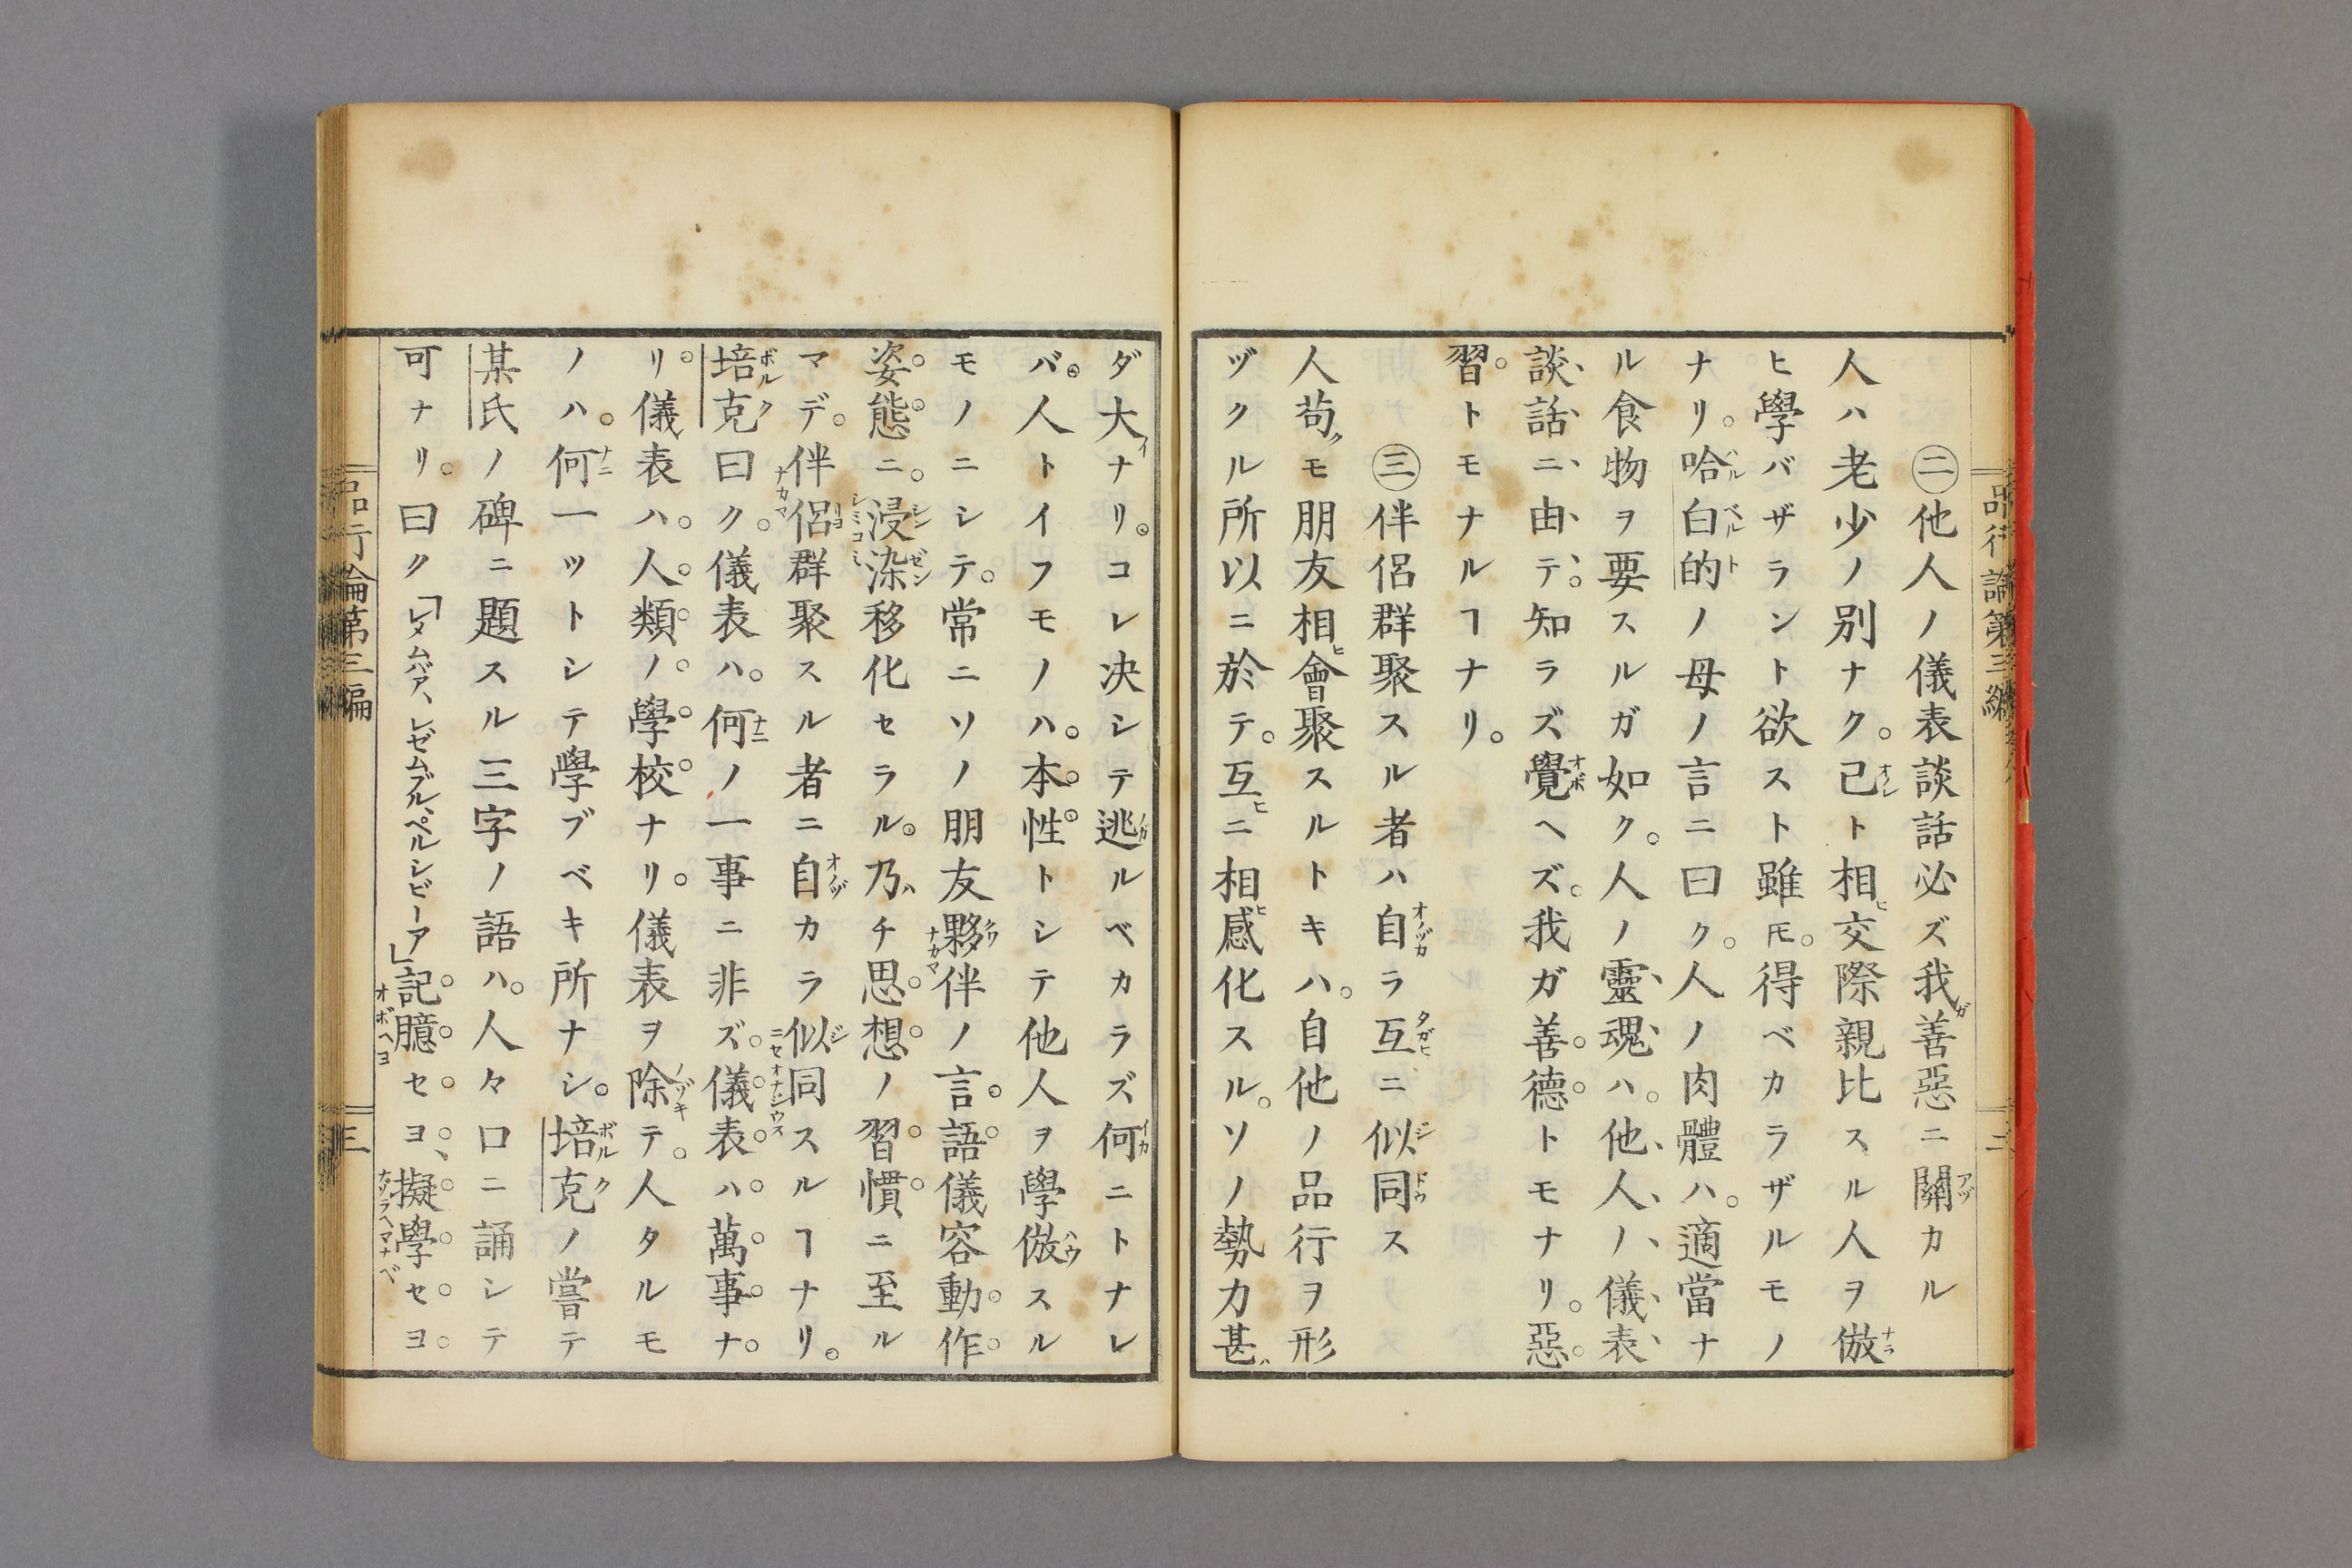 品行論第三編
二
㊁他人ノ儀表談話必ズ我善惡ニ關カル
人ハ老少ノ別ナク。己ト相交際親比スル人ヲ倣
ヒ學バザラント欲スト雖𪜈。得ベカラザルモノ
ナリ。哈白的ノ母ノ言ニ曰ク。人ノ肉體ハ。適當ナ
ル食物ヲ要スルガ如ク。人ノ靈魂ハ。他人ノ儀表
談話ニ由テ。知ラズ覺ヘズ。我ガ善德トモナリ。惡
習トモナルヿナリ。
㊂伴侶群聚スル者ハ自ラ互ニ似同ス
人苟モ朋友相會聚スルトキハ。自他ノ品行ヲ形
ヅクル所以ニ於テ。互ニ相感化スル。ソノ勢力甚
ダ大ナリ。コレ決シテ逃ルベカラズ何ニトナレ
バ。人トイフモノハ。本性トシテ他人ヲ學倣スル
モノニシテ。常ニソノ朋友夥伴ノ言語儀容動作
姿態ニ。浸染移化セラル。乃チ思想ノ習慣ニ至ル
マデ。伴侶群聚スル者ニ自カラ似同スルヿナリ。
培克曰ク。儀表ハ。何ノ一事ニ非ズ。儀表ハ萬事ナ
リ。儀表ハ。人類ノ學校ナリ。儀表ヲ除テ。人タルモ
ノハ。何一ツトシテ學ブベキ所ナシ。培克ノ嘗テ
某氏ノ碑ニ題スル三字ノ語ハ。人々口ニ誦シテ
可ナリ。曰ク「レメムバア、レゼムブル、ペルシビーア」記臆セヨ、擬學セヨ
品行論第三編
三